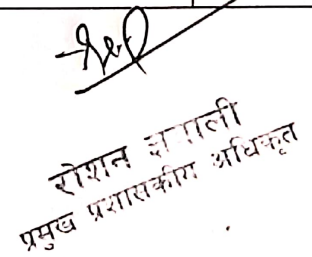 रोशन
प्रमुख प्रशासकीय अधिकृत